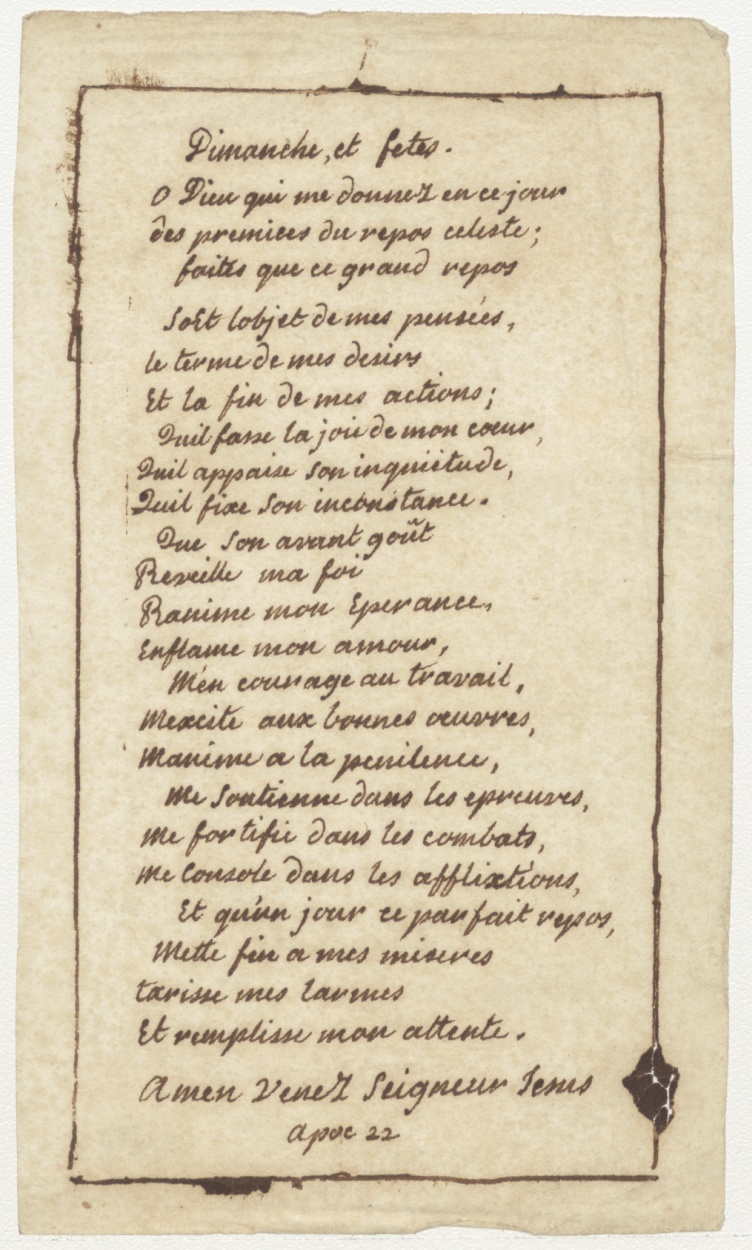 Dimanche, et fetes.
O Dieu qui me donnez en ce jour
des premices du repos celeste;
faites que ce grand repos
Soit lobjet de mes pensées,
le terme de mes desirs
Et la fin de mes actions;
Quil fasse la joie de mon cœur,
Quil appaise son inquiétude,
Quil fixe Son inconstance.
Que Son avant goût
Reveille ma foi
Ranime mon Eperance,
Enflame mon amour,
M'en courage au travail,
Mexcite aux bonnes œuvres,
Manime a la penitence,
Me Soutienne dans les epreuves,
Me fortifie dans les combats,
Me Console dans les afflixtions,
Et qu'un jour ce parfait repos,
Mette fin a mes miseres
tarisse mes larmes
Et remplisse mon attente.
Amen Venez Seigneur Jesus
apoc 22